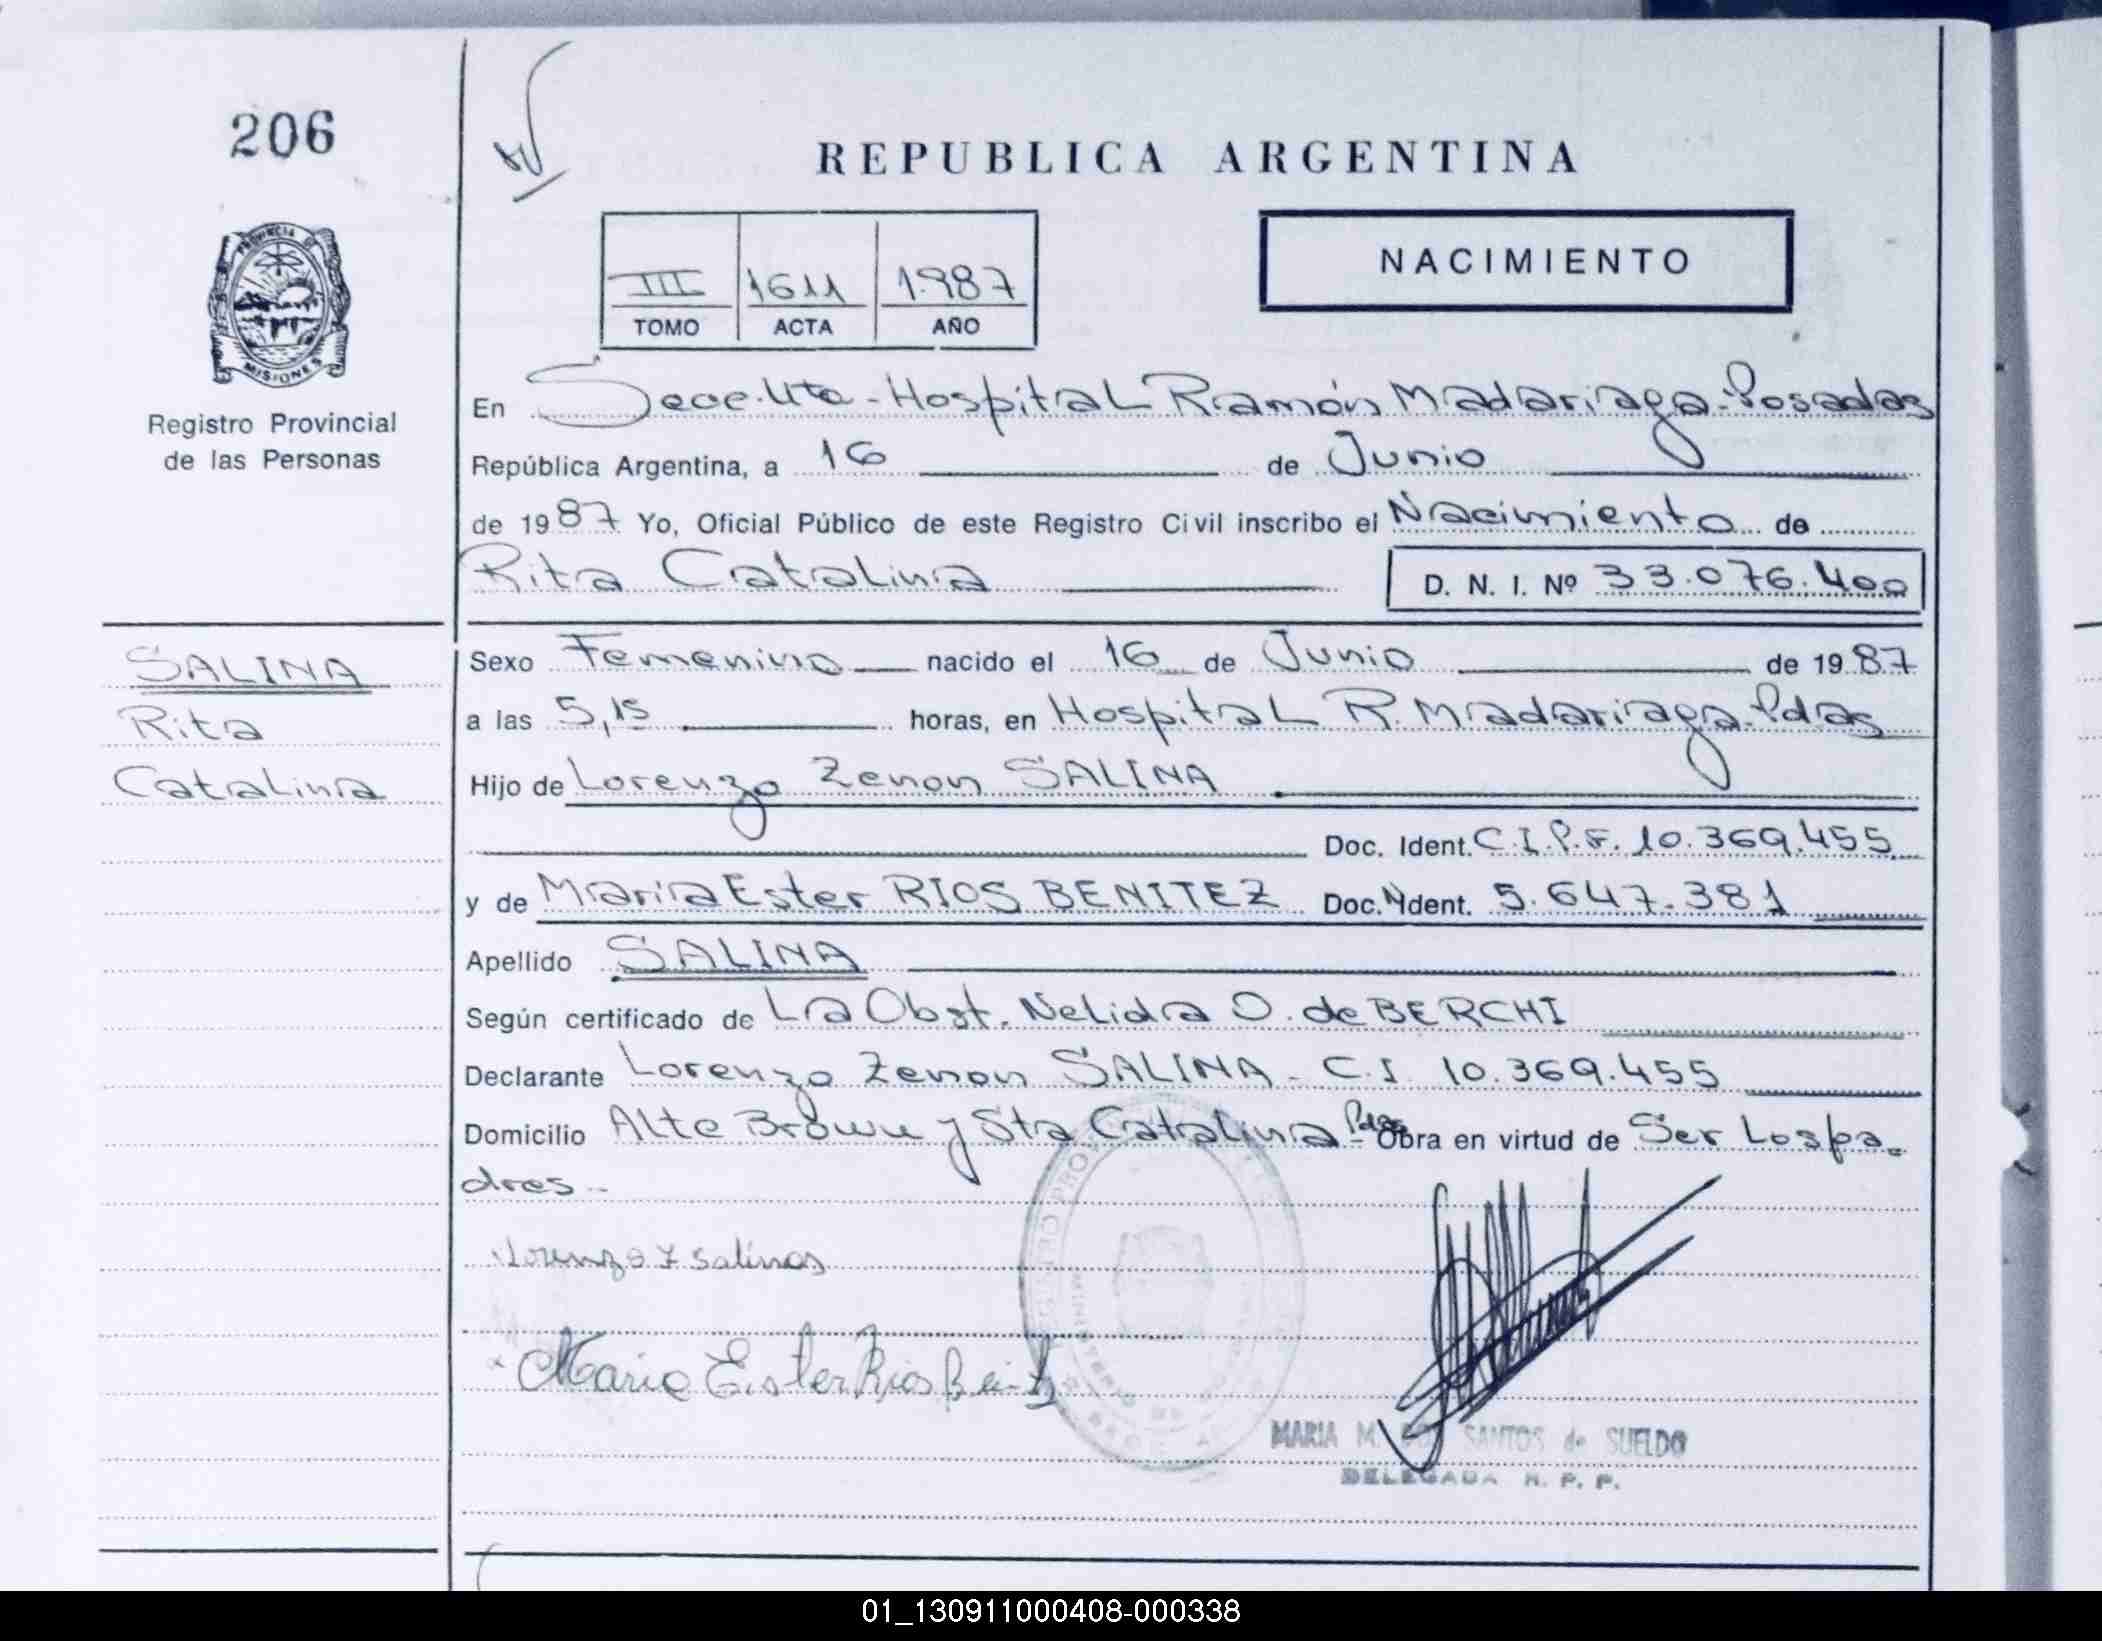 206
REPUBLICA ARGENTINA
III 1611 1987
TOMO ACTA AÑO
NACIMIENTO
PROVINCIA DE
MISIONES
Registro Provincial
de las Personas
En Secc. Hospital Ramón Madariaga - Posadas
República Argentina, a 16 de Junio
de 1987 Yo, Oficial Público de este Registro Civil inscribo el Nacimiento de
Rita Catalina D. N. I. Nº 33.076.400
SALINA
Rita
Catalina
Sexo Femenino nacido el 16 de Junio de 1987
a las 5,15 horas, en Hospital R. Madariaga - Pdas
Hijo de Lorenzo Zenon SALINA
Doc. Ident. C.I.P.F. 10.369.455
y de Maria Ester RIOS BENITEZ Doc. Ident. 5.647.381
Apellido SALINA
Según certificado de La Obst. Nelida O. de BERCHI
Declarante Lorenzo Zenon SALINA - C.I. 10.369.455
Domicilio Alte Brown y Sta Catalina - Pdas Obra en virtud de Ser Los pa-
dres -
Lorenzo Z Salinas
Maria Ester Rios Benitez
MARIA M. DOS SANTOS de SUELDO
DELEGADA R. P. P.
01_130911000408-000338